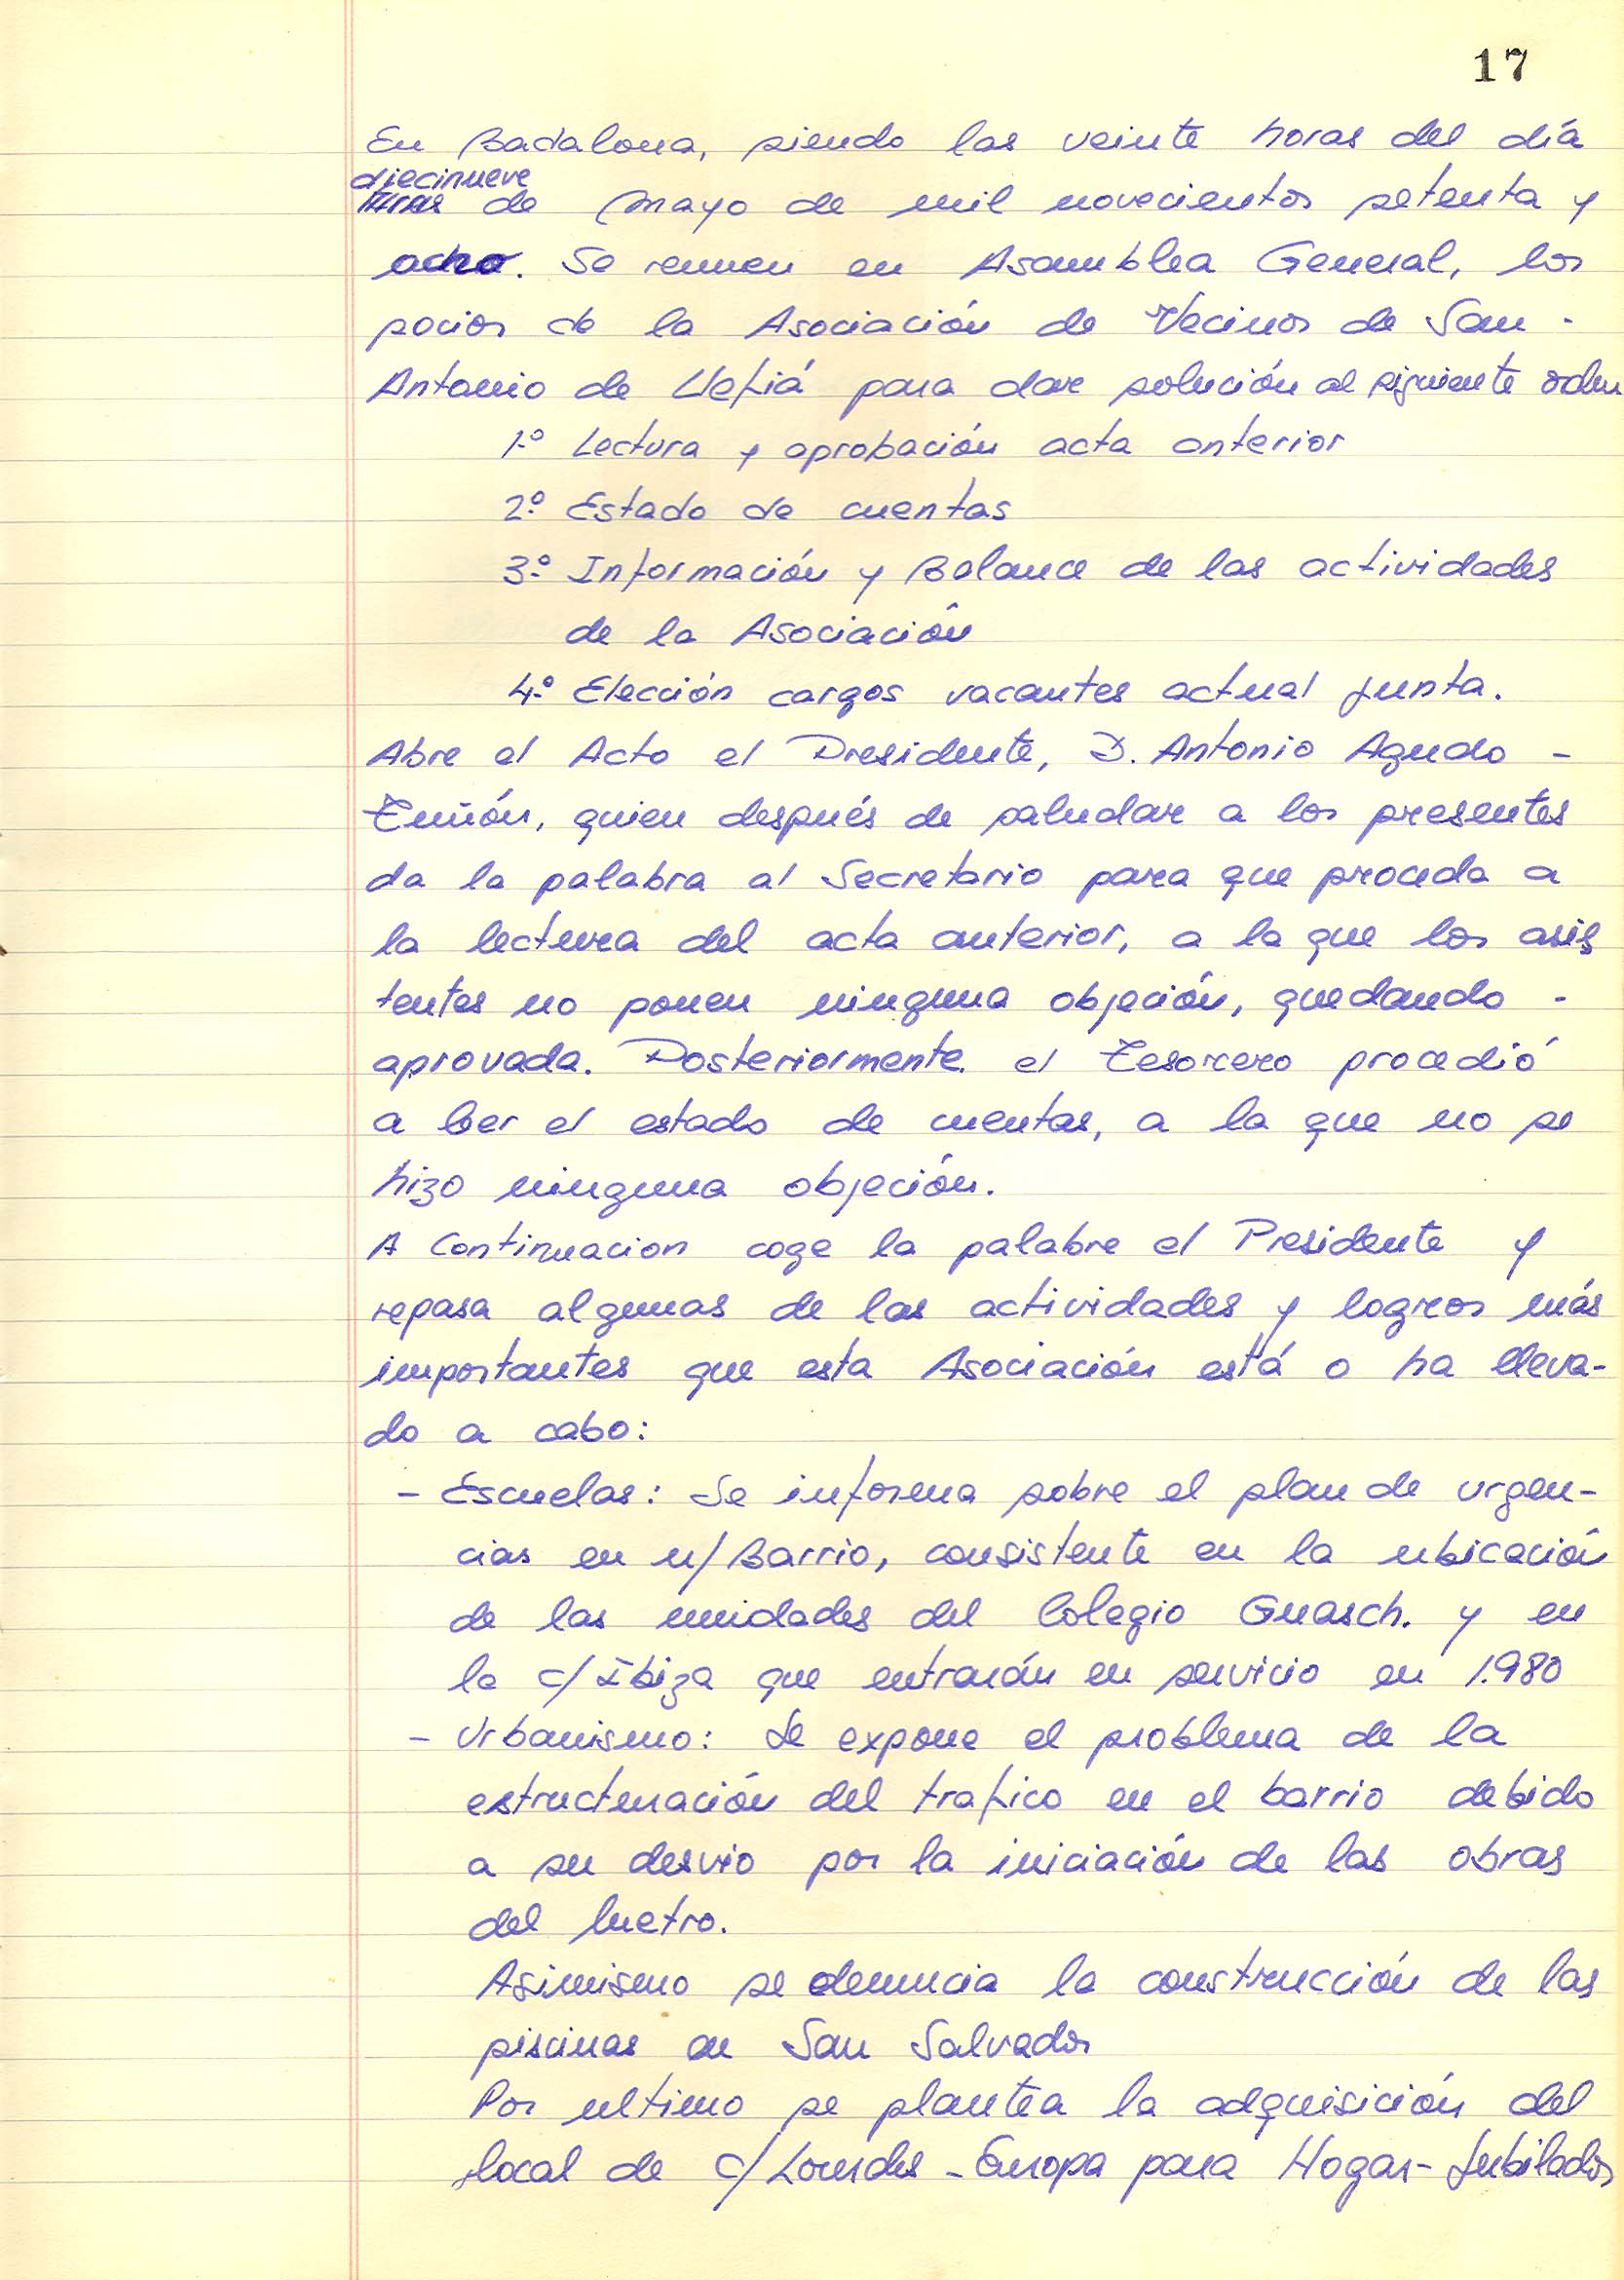 17
En Badalona, siendo las veinte horas del día
diecinueve
de Mayo de mil novecientos setenta y
ocho. Se reunen en Asamblea General, los
socios de la Asociación de Vecinos de San -
Antonio de Llefiá para dar solución al siguiente orden
1º Lectura y aprobación acta anterior
2º Estado de cuentas
3º Información y Balance de las actividades
de la Asociación
4º Elección cargos vacantes actual Junta.
Abre el Acto el Presidente, D. Antonio Agudo -
Tuñón, quien después de saludar a los presentes
da la palabra al Secretario para que proceda a
la lectura del acta anterior, a la que los asis
tentes no ponen ninguna objeción, quedando -
aprovada. Posteriormente el Tesorero procedió
a leer el estado de cuentas, a la que no se
hizo ninguna objeción.
A Continuacion coge la palabre el Presidente y
repasa algunas de las actividades y logros más
importantes que esta Asociación está o ha lleva-
do a cabo:
- Escuelas: Se informa sobre el plan de urgen-
cias en n/Barrio, consistente en la ubicación
de las unidades del Colegio Guasch. y en
la c/Ibiza que entrarán en servicio en 1.980
- Urbanismo: Se expone el problema de la
estructuración del trafico en el barrio debido
a su desvio por la iniciación de las obras
del metro.
Asimismo se denuncia la construcción de las
piscinas en San Salvador
Por ultimo se plantea la adquisición del
local de c/Lourdes - Europa para Hogar-Jubilados